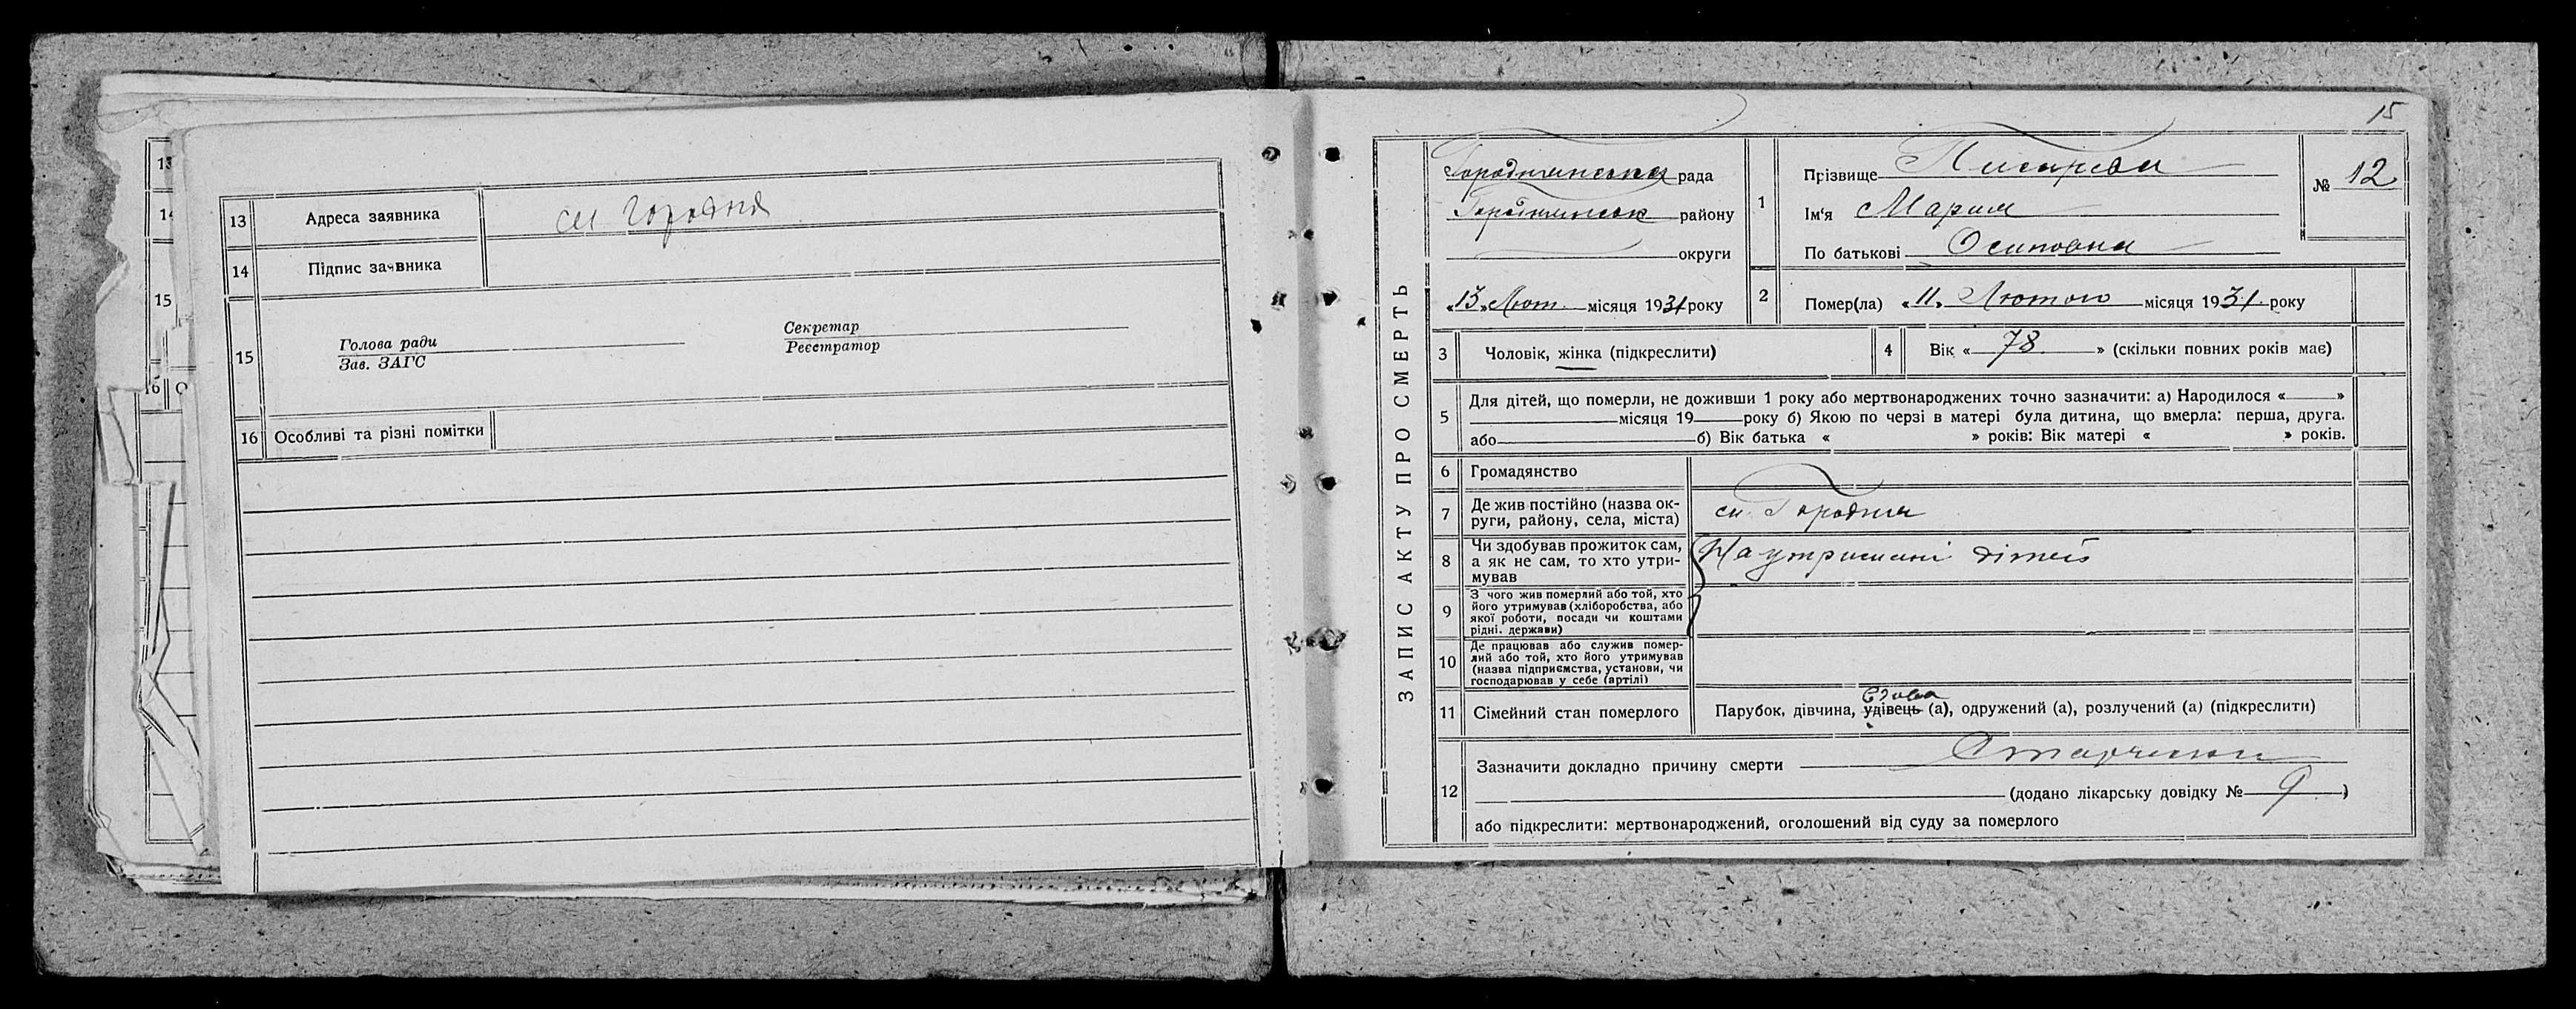 13
14
15
16 О
13 Адреса заявника см Городня
14 Підпис заявника
15
Голова ради
Зав. ЗАГС
Секретар
Реєстратор
16 Особливі та різні помітки
15
ЗАПИС АКТУ ПРО СМЕРТЬ
Городнянська рада
Городнянськ району
округи
«13» Лют. місяця 1931 року
1 Прізвище
Ім'я Мария
По батькові Осиповна
№ 12
2 Помер(ла) «11» Лютого місяця 1931 року
3 Чоловік, жінка (підкреслити)
4 Вік « 78 » (скільки повних років має)
5 Для дітей, що померли, не доживши 1 року або мертвонароджених точно зазначити: а) Народилося « »
місяця 19 року б) Якою по черзі в матері була дитина, що вмерла: перша, друга.
або б) Вік батька « » років: Вік матері « » років.
6 Громадянство
7 Де жив постійно (назва ок-
руги, району, села, міста) см. Городня
8 Чи здобував прожиток сам,
а як не сам, то хто утри-
мував На утриманні дітей
9 З чого жив померлий або той, хто
його утримував (хліборобства, або
якої роботи, посади чи коштами
рідні. держави)
10 Де працював або служив помер-
лий або той, хто його утримував
(назва підприємства, установи, чи
господарював у себе (артілі)
11 Сімейний стан померлого
вдова
Парубок, дівчина, удівець (а), одружений (а), розлучений (а) (підкреслити)
12 Зазначити докладно причину смерти
(додано лікарську довідку № 9 )
або підкреслити: мертвонароджений, оголошений від суду за померлого